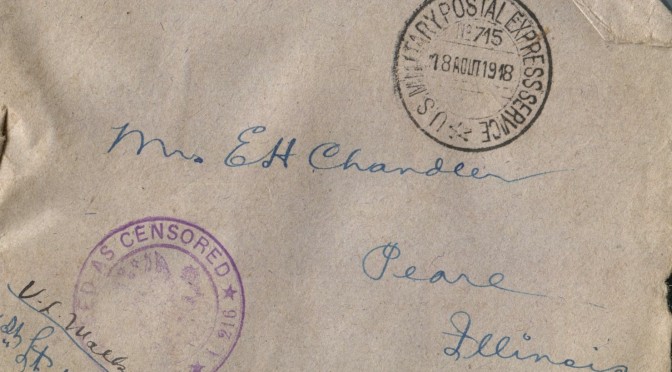 U.S. MILITARY POSTAL EXPRESS SERVICE
No 715
18 AOUT 1918
Mrs. E H Chandler
Pearl
Illinois
AS CENSORED
216